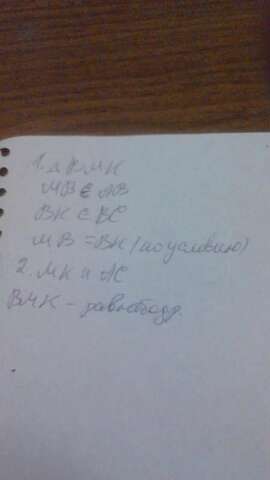 1. △ BMK
MB ∈ AB
BK ∈ BC
MB = BK (по условию)
2. MK и AC
BMK - равнобедр.